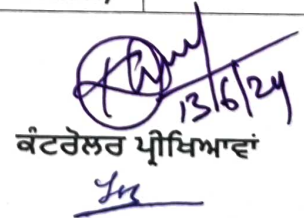 13/6/24
ਕੰਟਰੋਲਰ ਪ੍ਰੀਖਿਆਵਾਂ